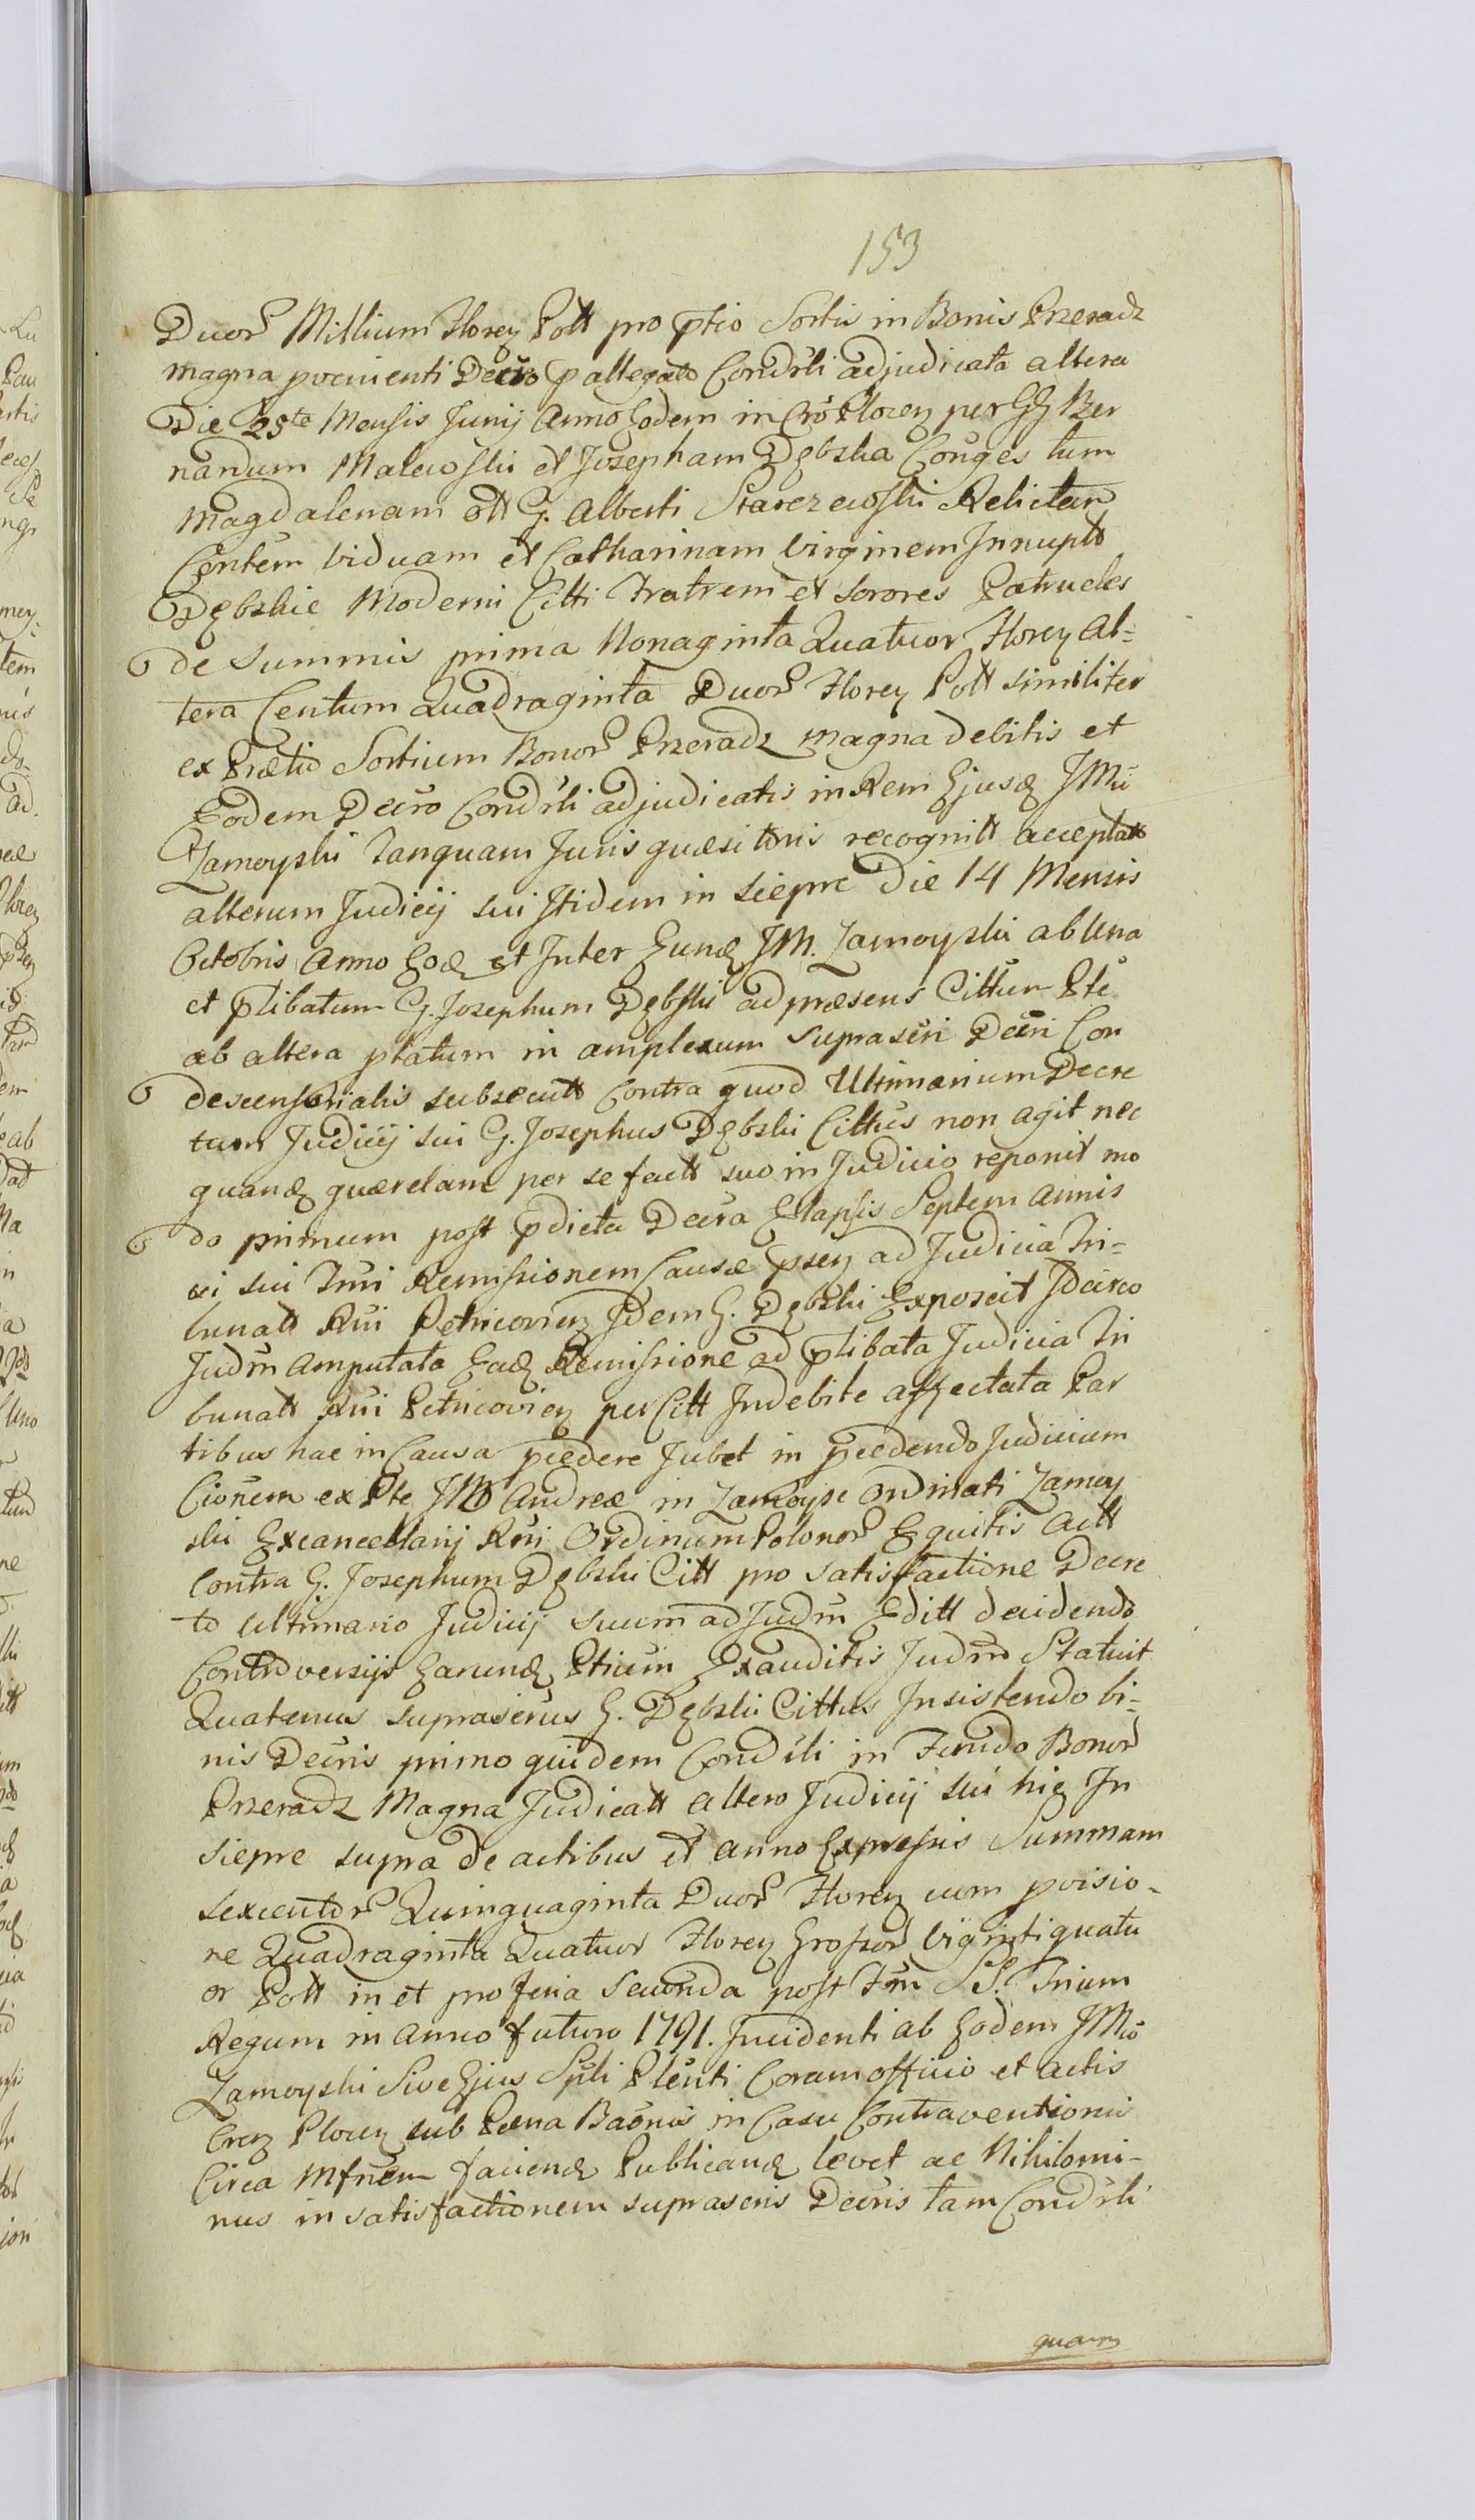 153
Duor Millium Floren Poll pro ptio Sortis in Bonis Przeradz
magna pvenienti Decro p allegato Condrli adjudicata altera
Die 25ta Mensis Junij Anno Eodem in Cro Plocen per GG Ber
nardum Malewski et Josepham Dębska Conges tum
Magdalenam ott G. Alberti Starczewski Relictam
Contem viduam et Catharinam Virginem Innuptt
Dębskie Moderni Citti Fratrem et sorores Patrueles
de summis prima Nonaginta Quatuor Floren Al-
tera Centum Quadraginta Duor Floren Poll similiter
ex Prætio Sortium Bonor Przeradz magna debitis et
Eodem Decro Condrli adjudicatis in Rem Ejusd JMci
Zamoyski Tanquam Juris quæsitoris recognitt acceptatt
alterum Judicij sui Itidem in Siepre Die 14 Mensis
Octobris Anno Eod et Inter Eund JM. Zamoyski ab una
et plibatum G. Josephum Dębski ad præsens Cittum Pte
ab altera platum in amplexum suprascri Decri Con
descensorialis subsecutt Contra quod Ultimarium Decre
tum Judicij sui G. Josephus Dębski Cittus non agit nec
quand quærelam per se factt suo in Judicio reponit mo
do primum post pdicta Decra Elapsis Septem Annis
vi sui Tmi Remissionem Causæ psen ad Judicia Tri-
bunatt Rni Petricovien Idem G. Dębski Exposcit Idcirco
Judm Amputata Ead Remissione ad plibata Judicia Tri
bunatt Rni Petricovien per Citt Indebite affectata Par
tibus hac in Causa pcedere Jubet in pcedendo Judicium
Cionem ex Pte JM Andreæ in Zamoysc Ordinati Zamoy
ski Excancellarij Rni Ordinum Polonor Equitis Actt
Contra G. Josephum Dębski Citt pro satisfactione Decre
to Ultimario Judicij suum ad Judm Editt decidendo
Controversijs Earund Ptium Exauditis Judm Statuit
Quatenus suprascrus G. Dębski Cittus Insistendo bi-
nis Decris primo quidem Condrli in Fundo Bonor
Przeradz Magna Judicatt altero Judicij sui hic In
Siepre supra de actibus et anno Expressis Summam
sexcentor Quinquaginta Duor Floren cum pvisio-
ne Quadraginta Quatuor Floren Grossor viginti quatu
or Poll in et pro feria Secunda post Fm SS. Trium
Regum in Anno futuro 1791. Incidenti ab Eodem JMco
Zamoyski Sive Ejus Spli Plenti Coram officio et actis
Cren Plocen sub Pæna Baonis in Casu Contraventionis
Circa Mfnem faciend Publicand levet ac Nihilomi-
nus in satisfactionem suprascris Decris tam Condrli
quam